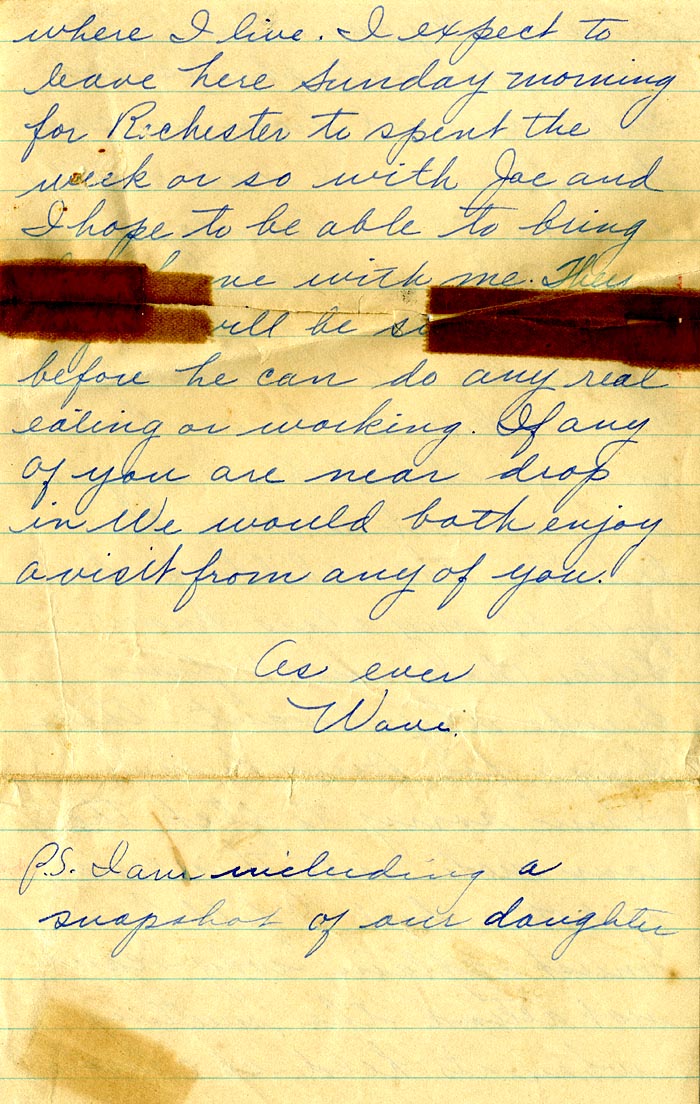 where I live. I expect to
leave here Sunday morning
for Rochester to spent the
week or so with Joe and
I hope to be able to bring
with me. They
will be
before he can do any real
eating or working. If any
of you are near drop
in We would both enjoy
a visit from any of you.
As ever
P.S. I am including a
snapshot of our daughter